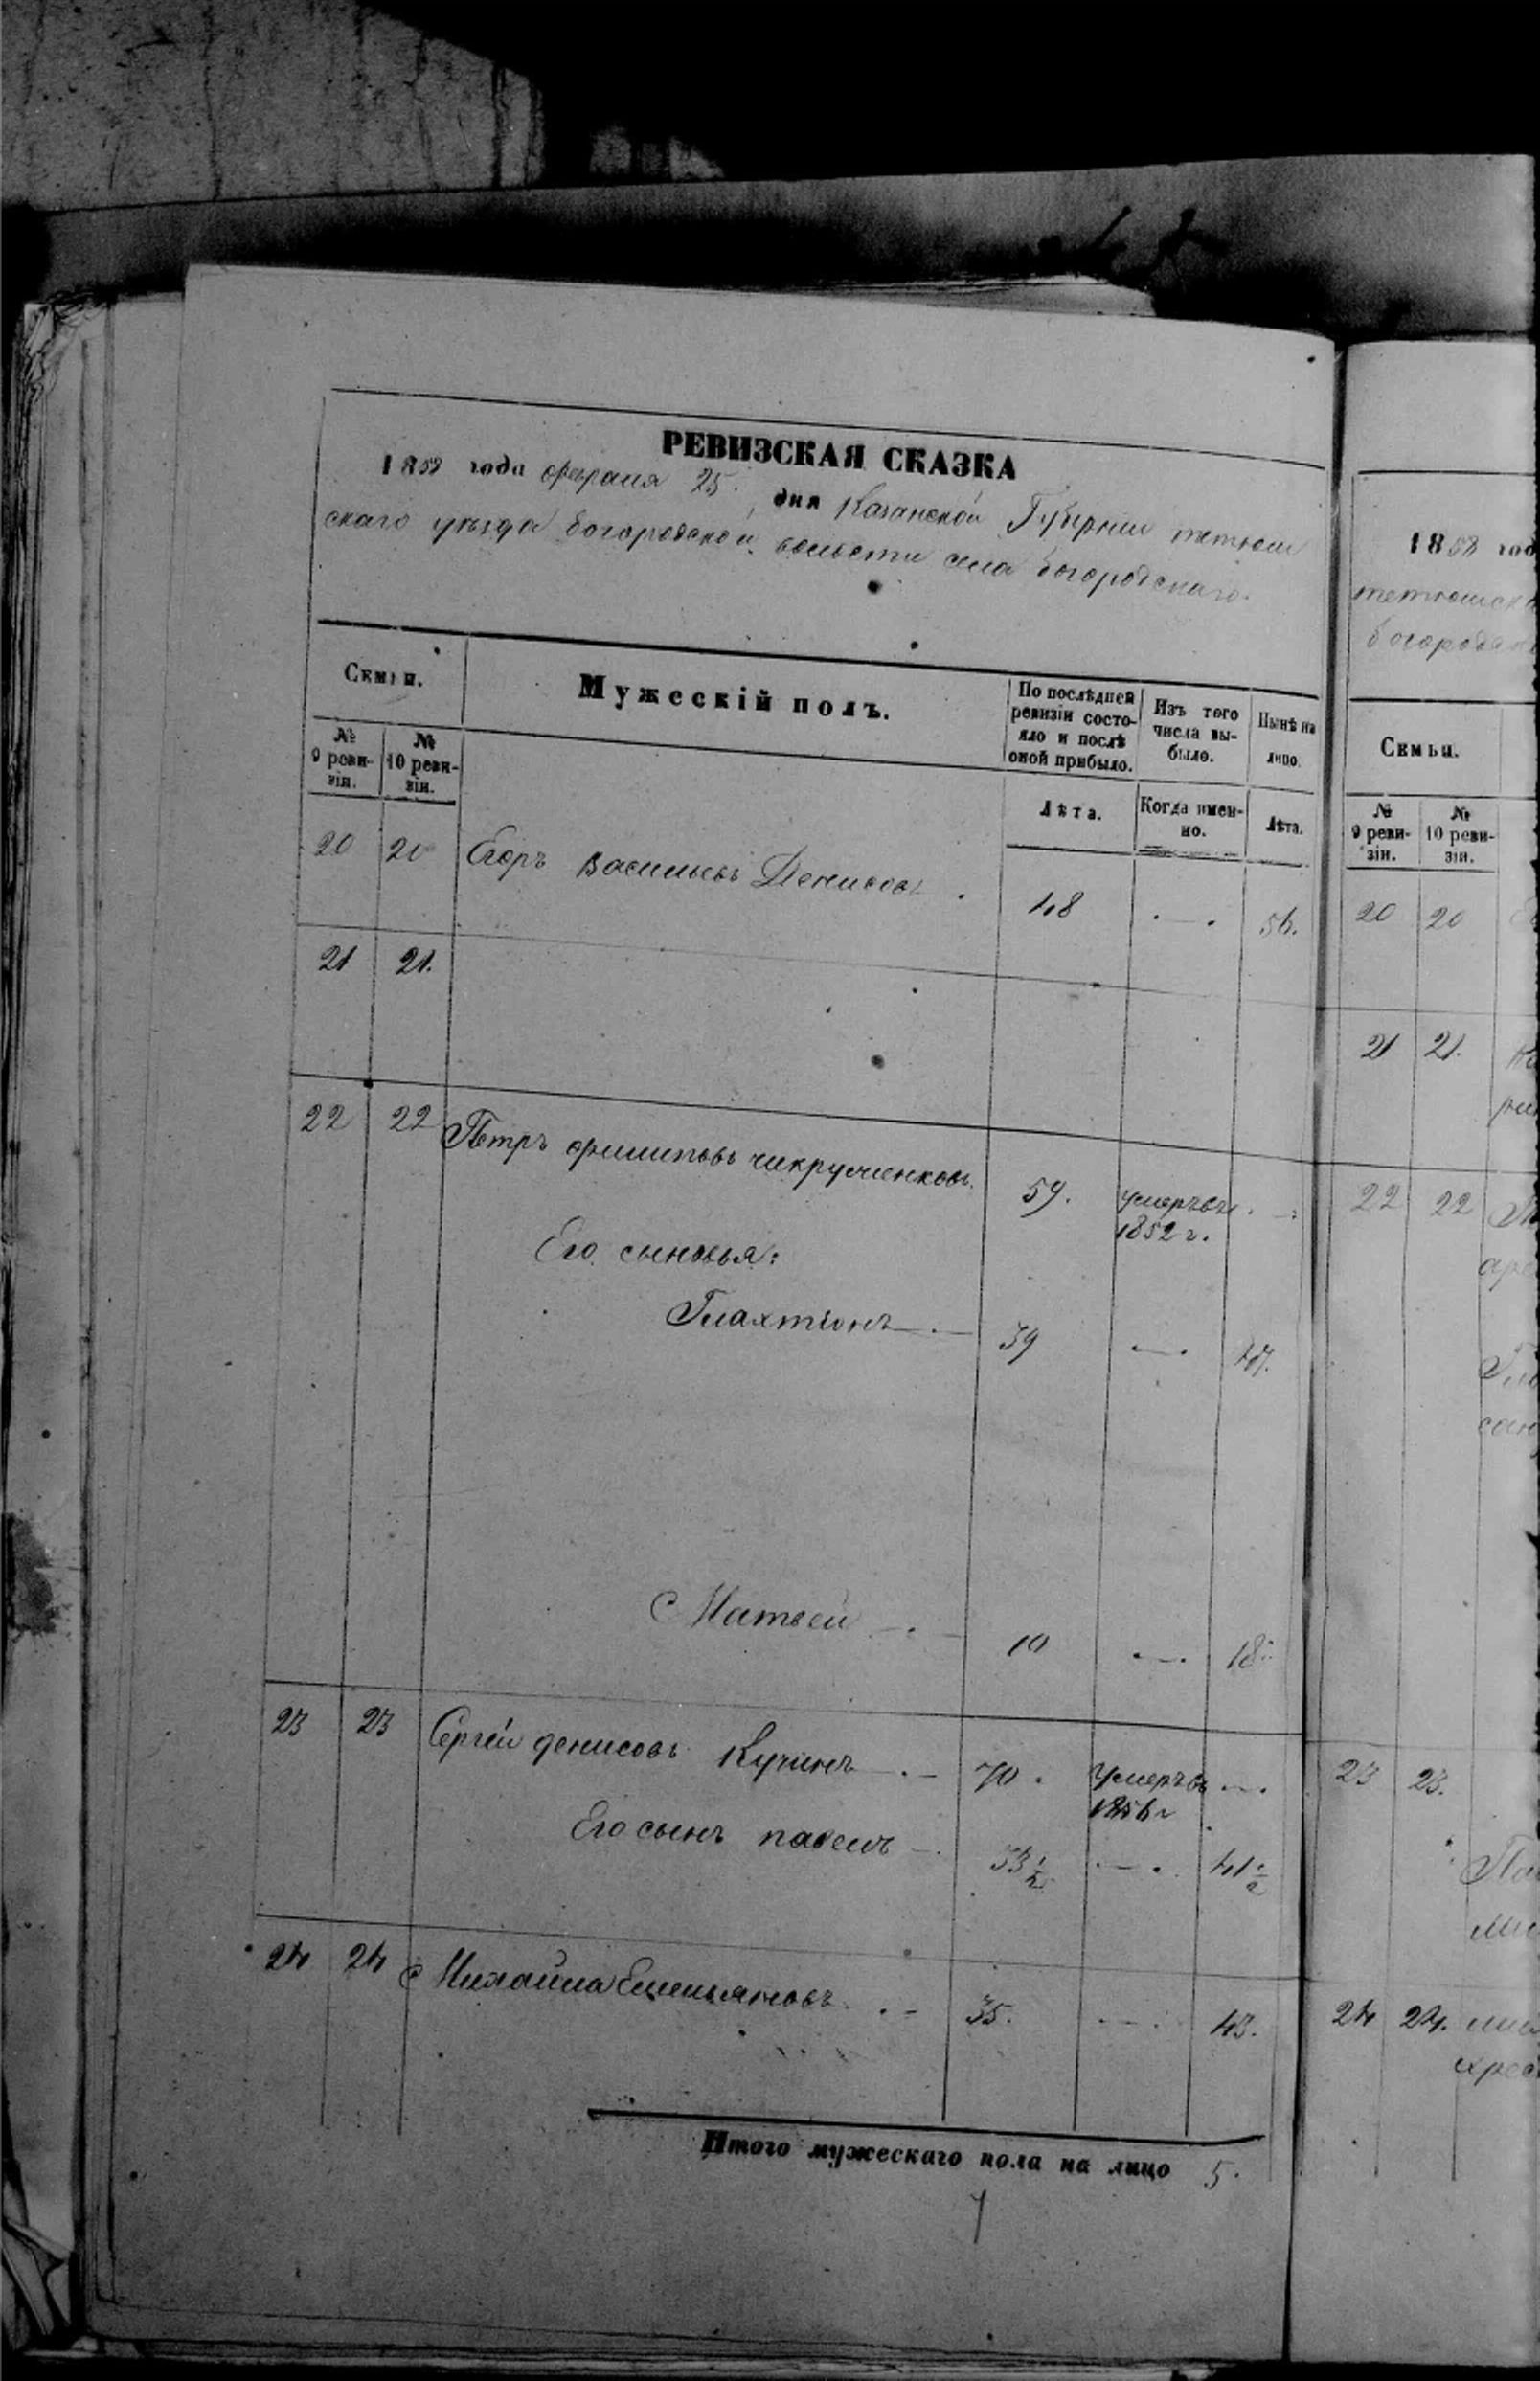 РЕВИЗСКАЯ СКАЗКА
1858 года февраля 25. дня Казанской Губернии тетюш
скаго уѣзда богородской волости села богородскаго.
Семьи.
Мужескій полъ.
По послѣдней ревизіи состояло и послѣ оной прибыло.
Изъ того числа выбыло.
Нынѣ на лицо.
№ 9 ревизіи.
№ 10 ревизіи.
Лѣта.
Когда именно.
Лѣта.
20 20 Егоръ Васильевъ Денисовъ 48 56.
21 21.
22 22 Петръ филиповъ 59. умеръ въ
1852 г.
Его сыновья:
Галахтіонъ 39 47.
Матвей 10 18
23 23 Сергей денисовъ Кучинъ 70. Умеръ въ
1856 г
Его сынъ павелъ 33 1/2 41 1/2
24 24 Михайла Емельяновъ 35. 43.
Итого мужескаго пола на лицо 5.
1858 год
тетюшск
богородск
Семьи.
№ 9 ревизіи.
№ 10 ревизіи.
20 20
21 21.
22 22
23 23.
24 24.